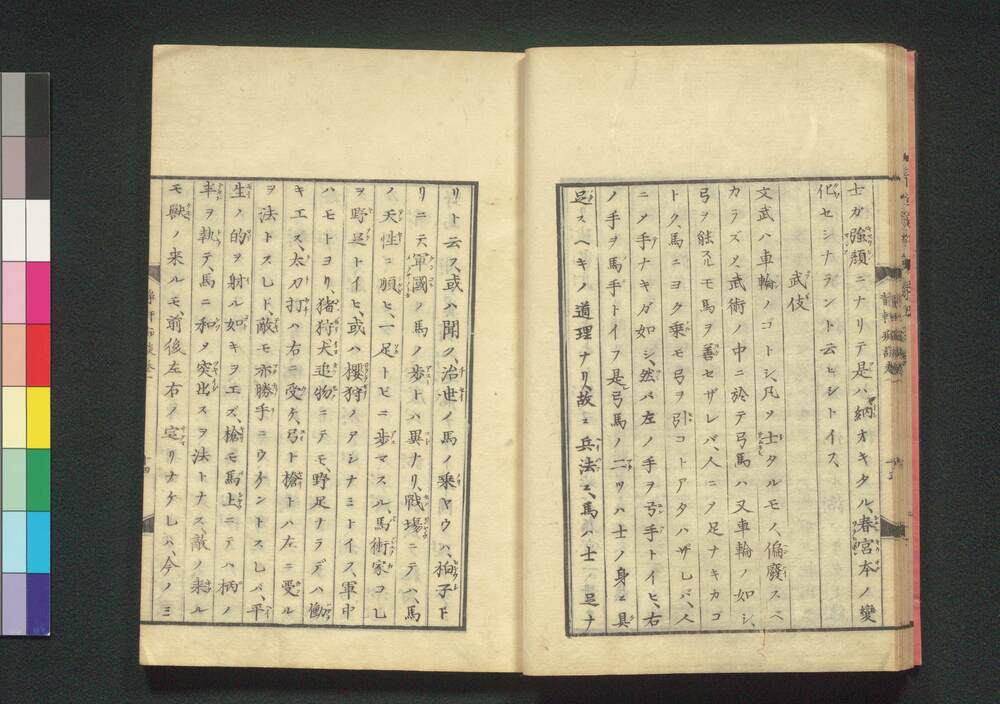 士ガ強顔ニナリテ是ハ納オキタル、春宮本ノ變
化セシナラント云ヒシトイス、
武伎
文武ハ車輪ノコトシ、凡ソ士タルモノ、偏廢スベ
カラズ、又武術ノ中ニ於テ弓馬ハ又車輪ノ如シ、
弓ヲ能スルモ馬ヲ善セザレバ、人ニソ足ナキカコ
トク、馬ニヨク乗モ弓ヲ引コトアタハザレバ、人
ニソ手ナキガ如シ、然バ左ノ手ヲ弓手トイヒ、右
ノ手ヲ馬手トイフ是弓馬ノ二ツハ士ノ身ニ具
足スヘキノ道理ナリ、故ニ兵法ニ、馬ハ士ノ足ナ
リト云ス、或ハ聞ク、治世ノ馬ノ乗ヤウハ、拍子ト
リニテ軍國ノ馬ノ歩トハ異ナリ、戰場ニテハ、馬
ノ天性ニ順ヒ、一足トビニ歩マスル、馬術家コレ
ヲ野足トイヒ、或ハ櫻狩ノアシナミトイス、軍中
ハモトヨリ、猪狩犬追物ニテモ、野足ナラデハ働
キエス、太刀打ハ右ニ受ケ、弓ト槍トハ左ニ受ル
ヲ法トスレド、敵モ亦勝手ニウケントスレバ、平
生ノ的ヲ射ル如キヲエズ、槍モ馬上ニテハ柄ノ
半ヲ執テ、馬ニ和タ突出スヲ法トナス、敵ノ来ル
モ獣ノ来ルモ、前後左右ノ定リナケレハ、今ノ三